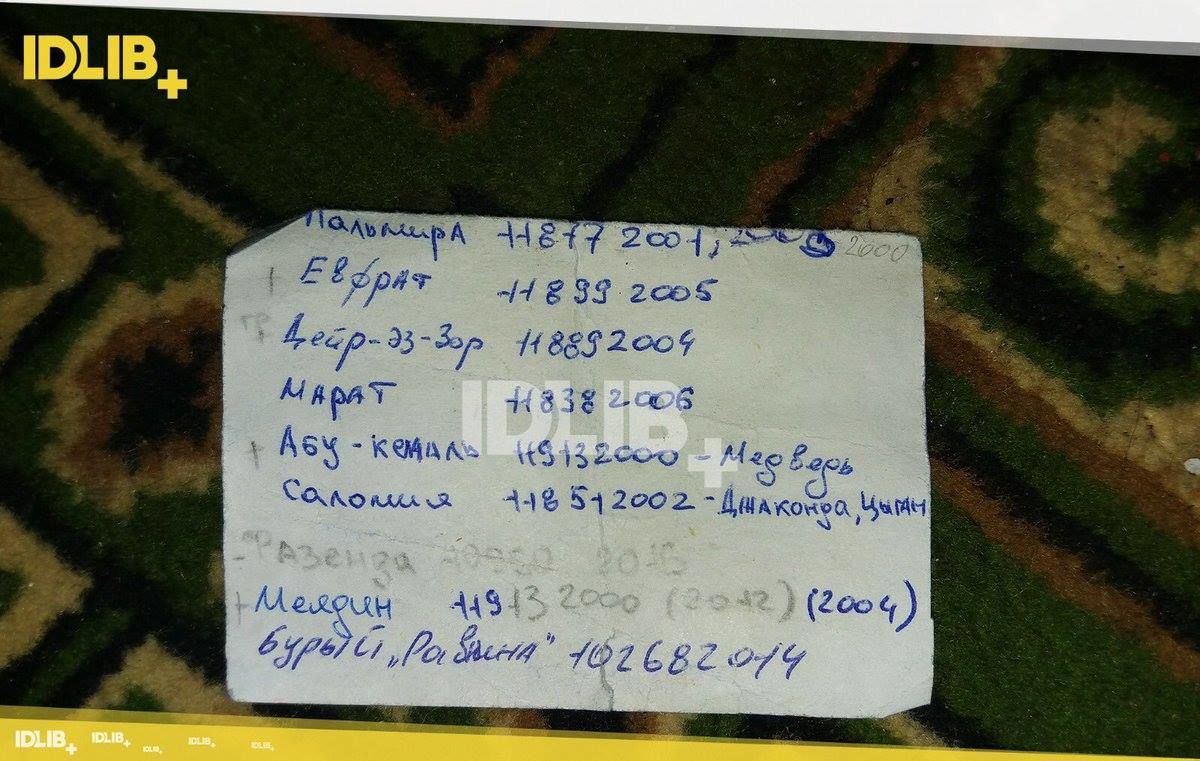 IDLIB+
Пальмира 11877 2001, 2000
Евфрат 11899 2005
Дейр-эз-Зор 11889 2004
Марат 11838 2006
IDLIB+
Абу-кемаль 11913 2000 - Медведь
Саломия 11851 2002 - Джаконда, Цыган
Фазенда
Меядин 11913 2000 (2012) (2004)
Бурый „Равнина" 10268 2014
IDLIB+ IDLIB+ IDLIB+ IDLIB+ IDLIB+